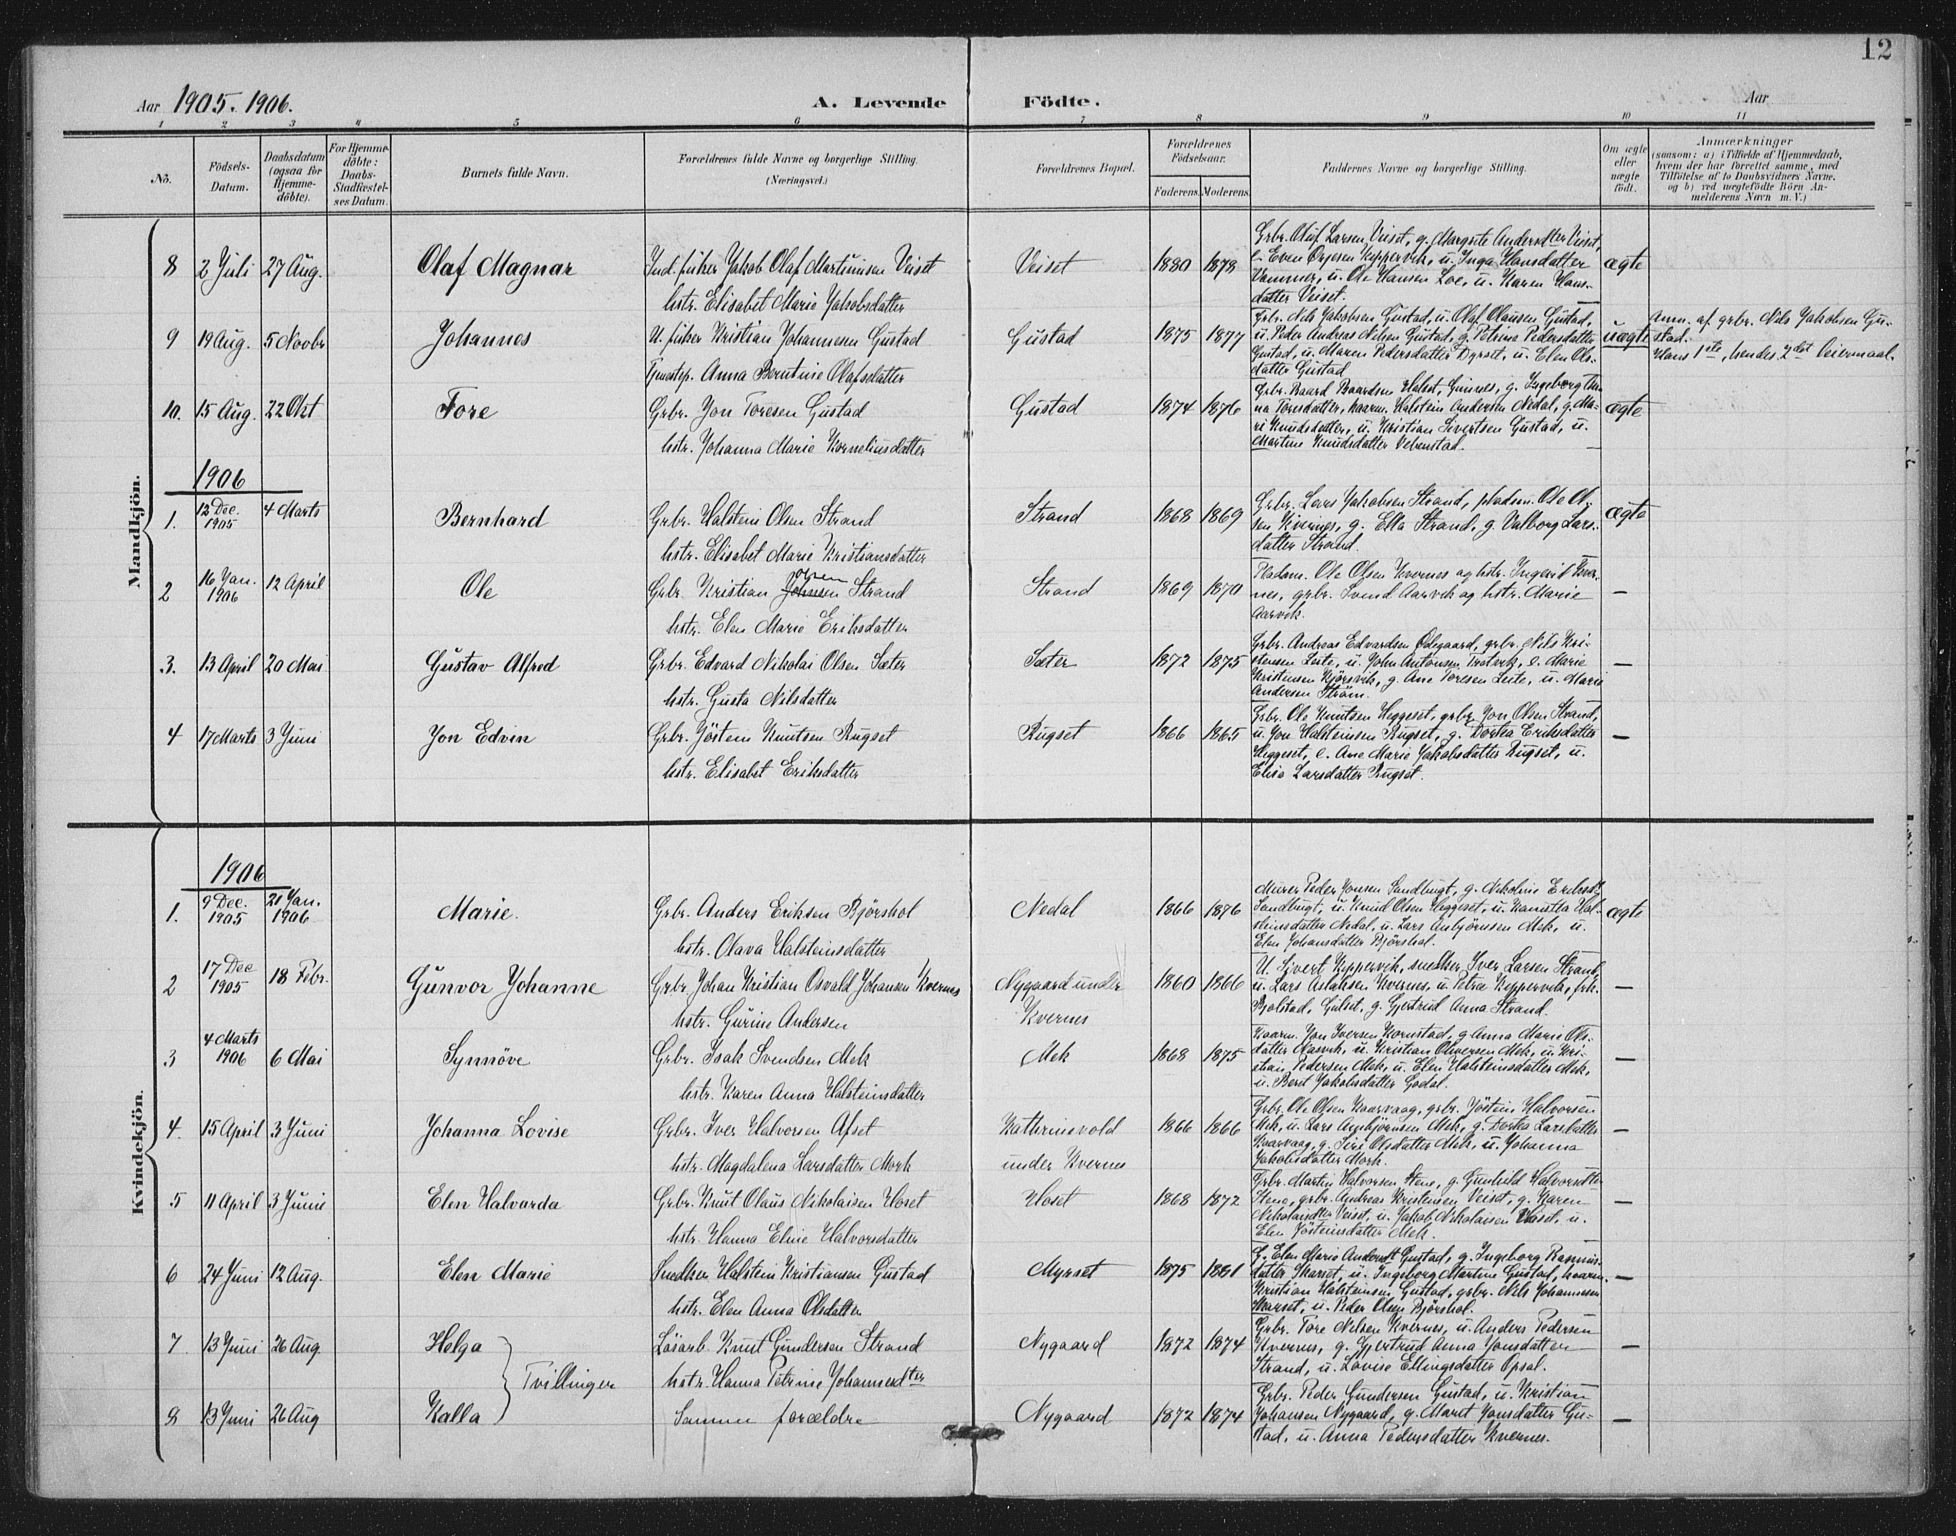 12
Aar 1905. 1906. A. Levende Födte. Aar
1 2 3 4 5 6 7 8 9 10 11
No.
Födsels-Datum.
Daabsdatum (ogsaa for Hjemme-döbte).
For Hjemme-döbte: Daabs-Stadfæstel-ses Datum.
Barnets fulde Navn.
Forældrenes fulde Navne og borgerlige Stilling.
(Næringsvei.)
Forældrenes Bopæl.
Forældrenes Födselsaar.
Faderens. Moderens.
Faddernes Navne og borgerlige Stilling.
Om ægte eller uægte födt.
Anmærkninger
(saasom: a) i Tilfælde af Hjemmedaab,
hvem der har forrettet samme, med
Tilföielse af to Daabsvidners Navne,
og b) ved uægtefödte Börn An-
melderens Navn m. V.)
Mandkjön.
8 2 Juli 27 Aug. Olaf Magnar Ind. fisker Jakob Olaf Martinusen Veiset
hstr. Elisabet Marie Jakobsdatter
Veiset 1880 1878
Grbr. Oluf Larsen Veiset, g. Margrete Andersdtter Veiset,
e. Even Ovesen Kippervik, u. Inga Hansdatter
u. Ole Hansen Loe, u. Karen Hans-
datter Veiset.
ægte
9 19 Aug. 5 Novbr Johannes U. fisker Kristian Johannesen Gustad
Tjenestep. Anna Berntine Olafsdatter
Gustad 1875 1877
Grbr. Nils Jakobsen Gustad, u. Olaf Olausen Gustad,
u. Peder Andreas Nilsen Gustad, g. Petrine Pedersdatter
Gustad, u. Maren Pedersdatter Dyrset, u. Elen Ols-
datter Gustad
uægte
Anm. af grbr. Nils Jakobsen Gu-
stad.
Hans 1ste, hendes 2det leiermaal.
10. 15 Aug. 22 Okt Tore Grbr. Jon Toresen Gustad
hstr. Johanna Marie Korneliusdatter
Gustad 1874 1876
Grbr. Baard Baardsen Halset, g. Ingeborg An-
na Toresdatter, kaarm. Halstein Andersen Nedal, g. Ma-
ri Knudsdatter, u. Kristian Sivertsen Gustad, u.
Martine Knudsdatter Vebenstad.
ægte
1906
1. 12 Dec. 1905 4 Marts Bernhard Grbr. Halstein Olsen Strand
hstr. Elisabet Marie Kristiansdatter
Strand 1868 1869
Grbr. Lars Jakobsen Strand, pladsm. Ole Ol-
sen Kvernes, g. Ella Strand, g. Valborg Lars-
datter Strand.
ægte
2 16 Jan. 1906 12 April Ole Grbr. Kristian Johnsen Olsen Strand
hstr. Elen Marie Eriksdatter
Strand 1869 1870
Pladsm. Ole Olsen Kvernes og hstr. Ingerid Kver-
nes, grbr. Svend Aarvik og hstr. Marie
Aarvik.
—
3. 13 April 20 Mai Gustav Alfred Grbr. Edvard Nikolai Olsen Sæter
hstr. Gusta Nilsdatter
Sæter 1872 1875
Grbr. Andreas Edvardsen Ødegaard, grbr. Nils Kri-
stensen Leite, u. John Antonsen Trotvik, e. Marie
Kristensen Bjørsvik, g. Ane Toresen Leite, u. Marie
Andersen Strøm.
—
4 17 Marts 3 Juni Jon Edvin Grbr. Jöstein Knutsen Rugset
hstr. Elisabet Eriksdatter
Rugset 1866 1865
Grbr. Ole Knutsen Heggeset, grbr. Jon Olsen Strand,
u. Jon Halsteinsen Rugset, g. Dorka Eriksdatter
Heggeset, e. Ane Marie Jakobsdatter Rugset, u.
Elise Larsdatter Rugset.
—
Kvindekjön.
1906
1. 9 Dec. 1905 21 Jan. 1906 Marie. Grbr. Anders Eriksen Bjørshol
hstr. Olava Halsteinsdatter
Nedal 1866 1876
Murer Peder Jonsen Sandbugt, g. Nikoline Eriksdt
Sandbugt, u. Knud Olsen Heggeset, u. Hal-
steinsdatter Nedal, u. Lars Anbjørnsen Mek, u.
Elen Johansdatter Bjørshol.
ægte
2 17 Dec 1905 18 Febr. Gunvor Johanne Grbr Johan Kristian Osvald Johansen Kvernes
hstr. Gurine Andersen
Nygaard under
Kvernes
1860 1866
U. Sivert Kippervik, snedker Iver Larsen Strand,
u. Lars Aslaksen Kvernes, u. Petra Kippervik, frk.
Bjolstad, Gulset, g. Gjertrud Anna Strand.
—
3 4 Marts 1906 6 Mai Synnöve Grbr. Isak Svendsen Mek
hstr. Karen Anna Halsteinsdatter
Mek 1868 1875
Kaarm. Jon Iversen Kornstad, g Anna Marie Ols-
datter Aasvik, u. Kristian Oliversen Mek, u. Kri-
stian Pedersen Mek, u. Elen Halsteinsdatter Mek,
u. Berit Jakobsdatter Godal.
—
4. 15 April 3 Juni Johanna Lovise Grbr. Iver Halvorsen Afset
hstr. Magdalena Larsdatter Mork
Kathrinevold
under Kvernes
1866 1866
Grbr. Ole Olsen Kaarvaag, grbr. Jöstein Halvorsen
Mek, u. Lars Anbjørnsen Mek, g. Dorka Larsdatter
Kaarvaag, g. Siri Olsdatter Mek, u. Johanna
Jakobsdatter Mork.
—
5 11 April 3 Juni Elen Halvarda Grbr. Knut Olaus Nikolaisen Hoset
hstr. Hanna Eline Halvorsdatter
Hoset 1868 1872
Grbr. Martin Halvorsen Stene, g. Gunhild Halvorsdtter
Stene, grbr. Andreas Kristensen Veiset, g. Karen
Nikolaisdtter Veiset, u. Jakob Nikolaisen Hoset, u.
Elen Jösteinsdatter Mek.
—
6 24 Juni 12 Aug. Elen Marie Snedker Halstein Kristiansen Gustad
hstr. Elen Anna Olsdatter
Myrset 1875 1881
G. Elen Marie Andersdt Gustad, g. Ingeborg Rasmus-
datter Skarset, u. Ingeborg Martine Gustad, kaarm.
Kristian Halsteinsen Gustad, grbr. Nils Johannesen
Skarset, u. Peder Olsen Bjørshol.
—
7 13 Juni 26 Aug Helga Tvillinger Lösarb. Knut Gundersen Strand
hstr. Hanna Petrine Johannesdter
Nygaard 1872 1874
Grbr. Tore Nilsen Kvernes, u. Anders Pedersen
Kvernes, g. Gjertrud Anna Jonsdatter
Strand, u. Lovise Ellingsdatter Opsal.
—
8 13 Juni 26 Aug Kalla Samme forældre
Nygaard 1872 1874
Grbr. Peder Gundersen Gustad, u. Kristian
Johansen Nygaard, g. Marit Jonsdatter Gu-
stad, u. Anna Pedersdatter Kvernes.
—